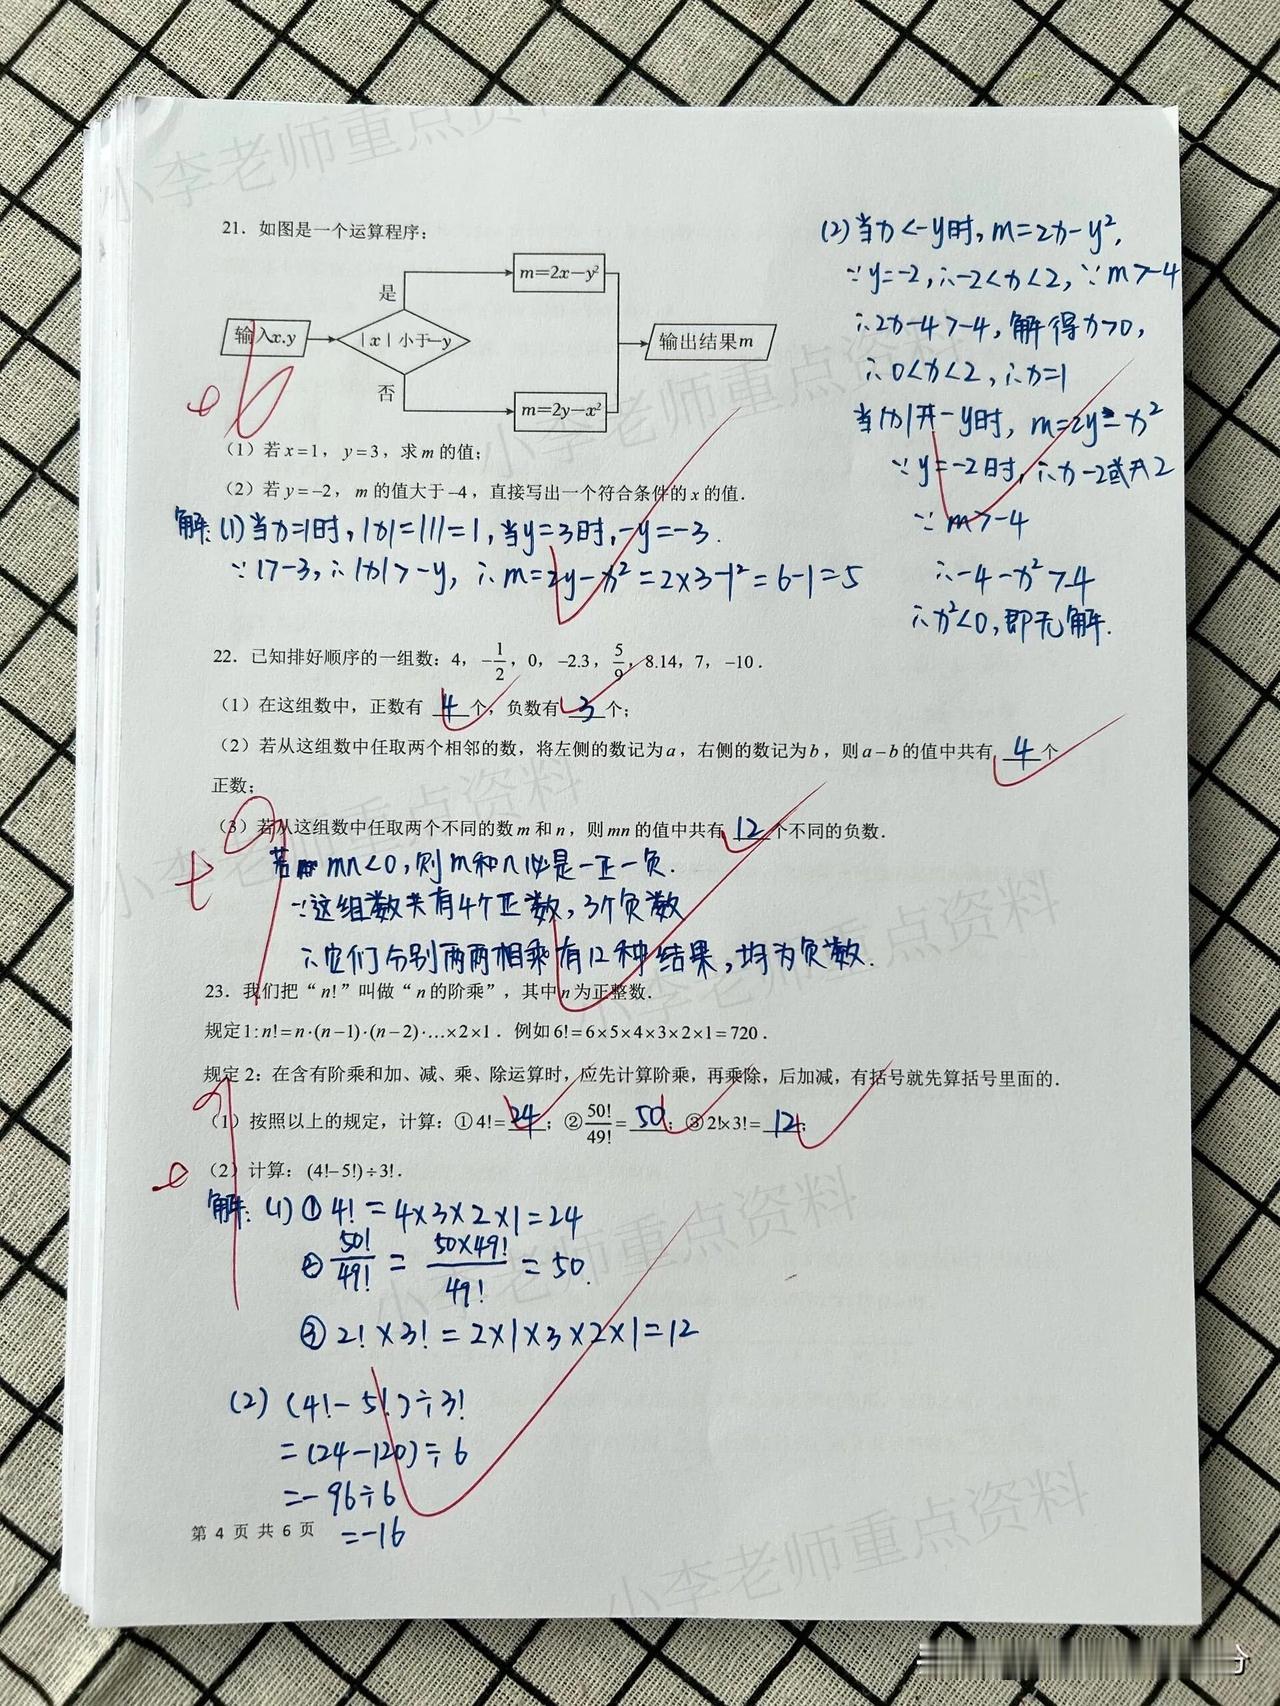 小李老师重点资料
21. 如图是一个运算程序：
输入x.y
|x|小于-y
是
否
m=2x-y²
m=2y-x²
输出结果m
（1）若 x=1，y=3，求 m 的值；
（2）若 y=-2，m 的值大于 -4，直接写出一个符合条件的 x 的值.
解：(1)当x=1时，|x|=|1|=1，当y=3时，-y=-3.
∵1>-3，∴|x|>-y，∴m=2y-x²=2×3-1²=6-1=5
(2)当x<-y时，m=2x-y²，
∵y=-2，∴-2<x<2，∵m>-4
∴2x-4>-4，解得x>0，
∴0<x<2，∴x=1
当|x|≮-y时，m=2y-x²
∵y=-2时，∴x-2或≮2
∵m>-4
∴-4-x²>-4
∴x²<0，即无解.
22. 已知排好顺序的一组数：4，-1/2，0，-2.3，5/9，8.14，7，-10.
（1）在这组数中，正数有 4 个，负数有 3 个；
（2）若从这组数中任取两个相邻的数，将左侧的数记为a，右侧的数记为b，则a-b的值中共有 4 个
正数；
（3）若从这组数中任取两个不同的数m和n，则mn的值中共有 12 个不同的负数.
若mn<0，则m和n必是一正一负.
∵这组数共有4个正数，3个负数
∴它们分别两两相乘有12种结果，均为负数.
23. 我们把“n!”叫做“n的阶乘”，其中n为正整数.
规定1:n!=n·(n-1)·(n-2)·…×2×1. 例如6!=6×5×4×3×2×1=720.
规定2：在含有阶乘和加、减、乘、除运算时，应先计算阶乘，再乘除，后加减，有括号就先算括号里面的.
（1）按照以上的规定，计算：①4!=24；②50!/49!=50；③2!×3!=12；
（2）计算：(4!-5!)÷3!.
解：(1)①4!=4×3×2×1=24
②50!/49!=50×49!/49!=50.
③2!×3!=2×1×3×2×1=12
(2) (4!-5!)÷3!
=(24-120)÷6
=-96÷6
=-16
第 4 页 共 6 页
小李老师重点资料
小李老师重点资料
小李老师重点资料
小李老师重点资料
小李老师重点资料